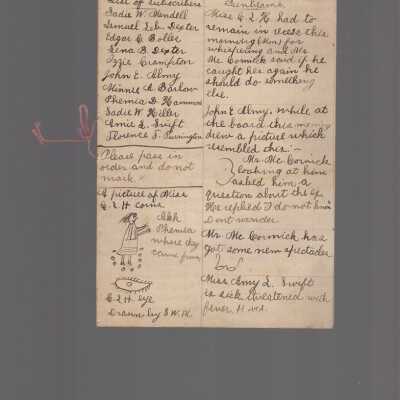 List of Subscribers
Sadie W. Wendell
Samuel Leb. Dexter
Edgar C. Boller
Lena B. Dexter
Lizzie Crampton
John E. Almy
Minnie A. Barlow
Phemia D. Hammond
Sadie W. Hiller
Amie L. Swift
Florence S. Purrington
Please pass in
order and do not
mark.
A picture of Miss
C & H corns
Ask
Phemia
where they
came from
C & H. eye
Drawn by S W. H.
Sunbeams
Miss C & H had to
remain in recess this
morning for
whispering and Mr.
Mc Cormick said if he
caught her again he
should do something
else.
John E. Almy. while at
the board this morning
drew a picture which
resembled this:-
Mr. Mc Cormick
looking at him
asked him a
question about the
He replied I do not know
Dont wonder
Mr. Mc Cormick has
got some new spectacles
Miss Amy L. Swift
is sick threatened with
fever.